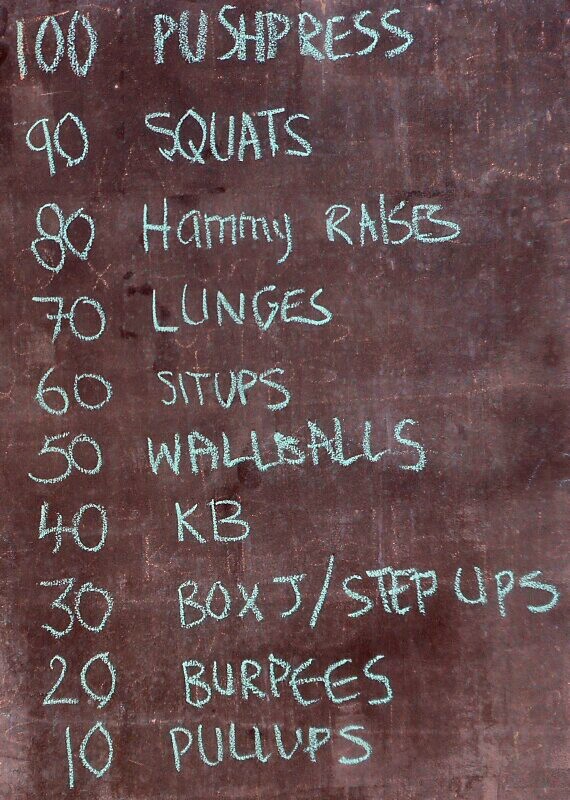 100 PUSHPRESS
90 SQUATS
80 Hammy RAISES
70 LUNGES
60 SITUPS
50 WALLBALLS
40 KB
30 BOX J/STEP UPS
20 BURPEES
10 PULLUPS